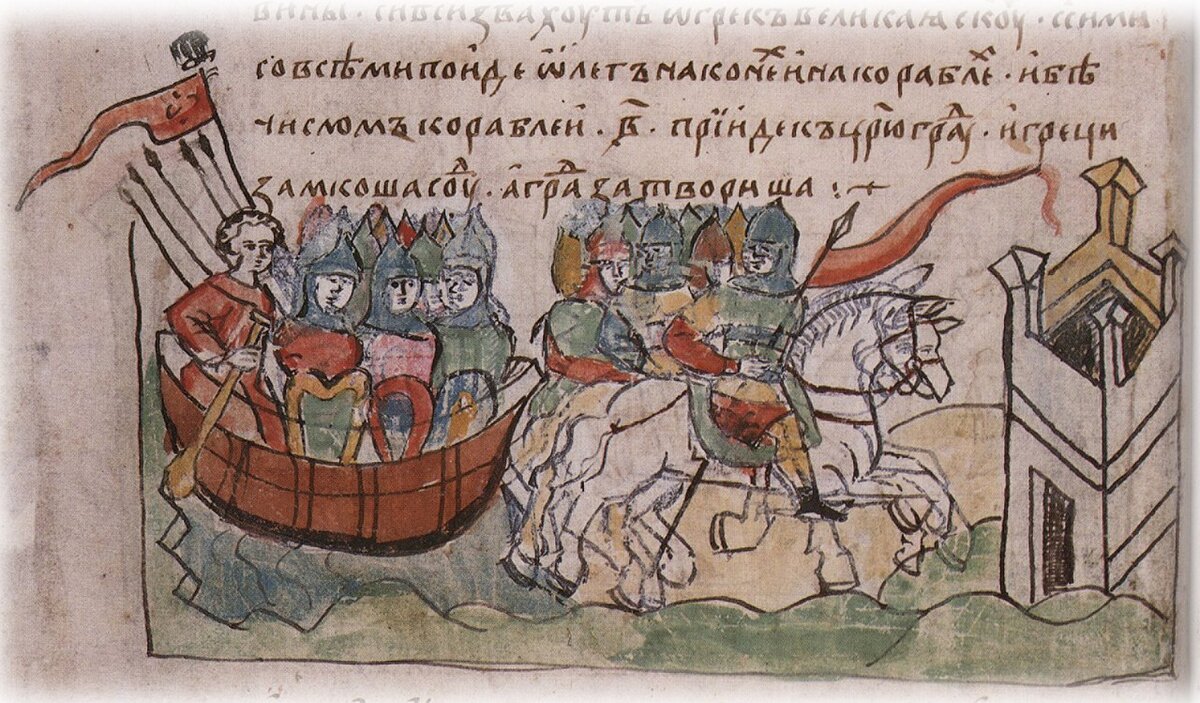 вины · си вси звахоуть ѿ грекъ великаꙗ скоуⷴ · с сими
со всѣми поиде ѿлегъ на конеⷯ и на кораблеⷯ · и бѣ
числомъ кораблеи · в҃ · прїиде къ цр҃юграⷣу · и греци
замкоша соуⷣ · а граⷣ затвориша :~